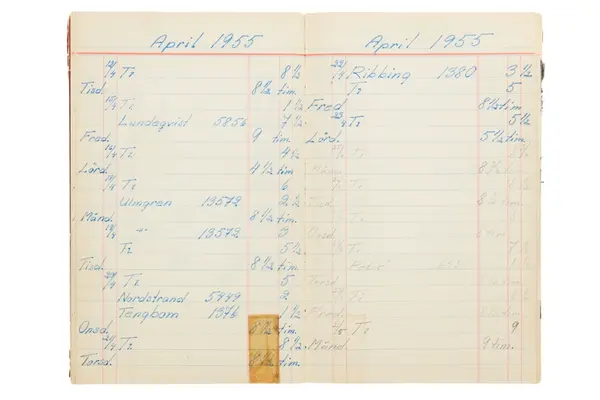 April 1955
12/4 T2 8 1/2
Tisd. 8 1/2 tim.
15/4 T2 1 1/2
Lundqvist 5856 7 1/2
Fred. 9 tim
16/4 T2 4 1/2
Lörd. 4 1/2 tim
T2 6
Ulmgren 13572 2 1/2
Månd 8 1/2 tim.
19/4 -"- 13572 3
T2 5 1/2
Tisd. 8 1/2 tim.
20/4 T2 5
Nordstrand 5449 2
Tengbom 1376 1 1/2
Onsd. 8 1/2 tim.
21/4 T2 8 1/2
Torsd. 8 1/2 tim.
April 1955
22/4 Ribbing 1380 3 1/2
T2 5
Fred 8 1/2 tim
23/4 T2 5 1/2
Lörd. 5 1/2 tim.
T2
Månd 8 1/2
T2
Tisd
T2
Onsd
T2 7 1/2
Torsd
T2
Fred
T2 9
Månd 9 tim.